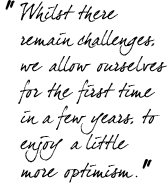 "Whilst there
remain challenges,
we allow ourselves
for the first time
in a few years, to
enjoy a little
more optimism."